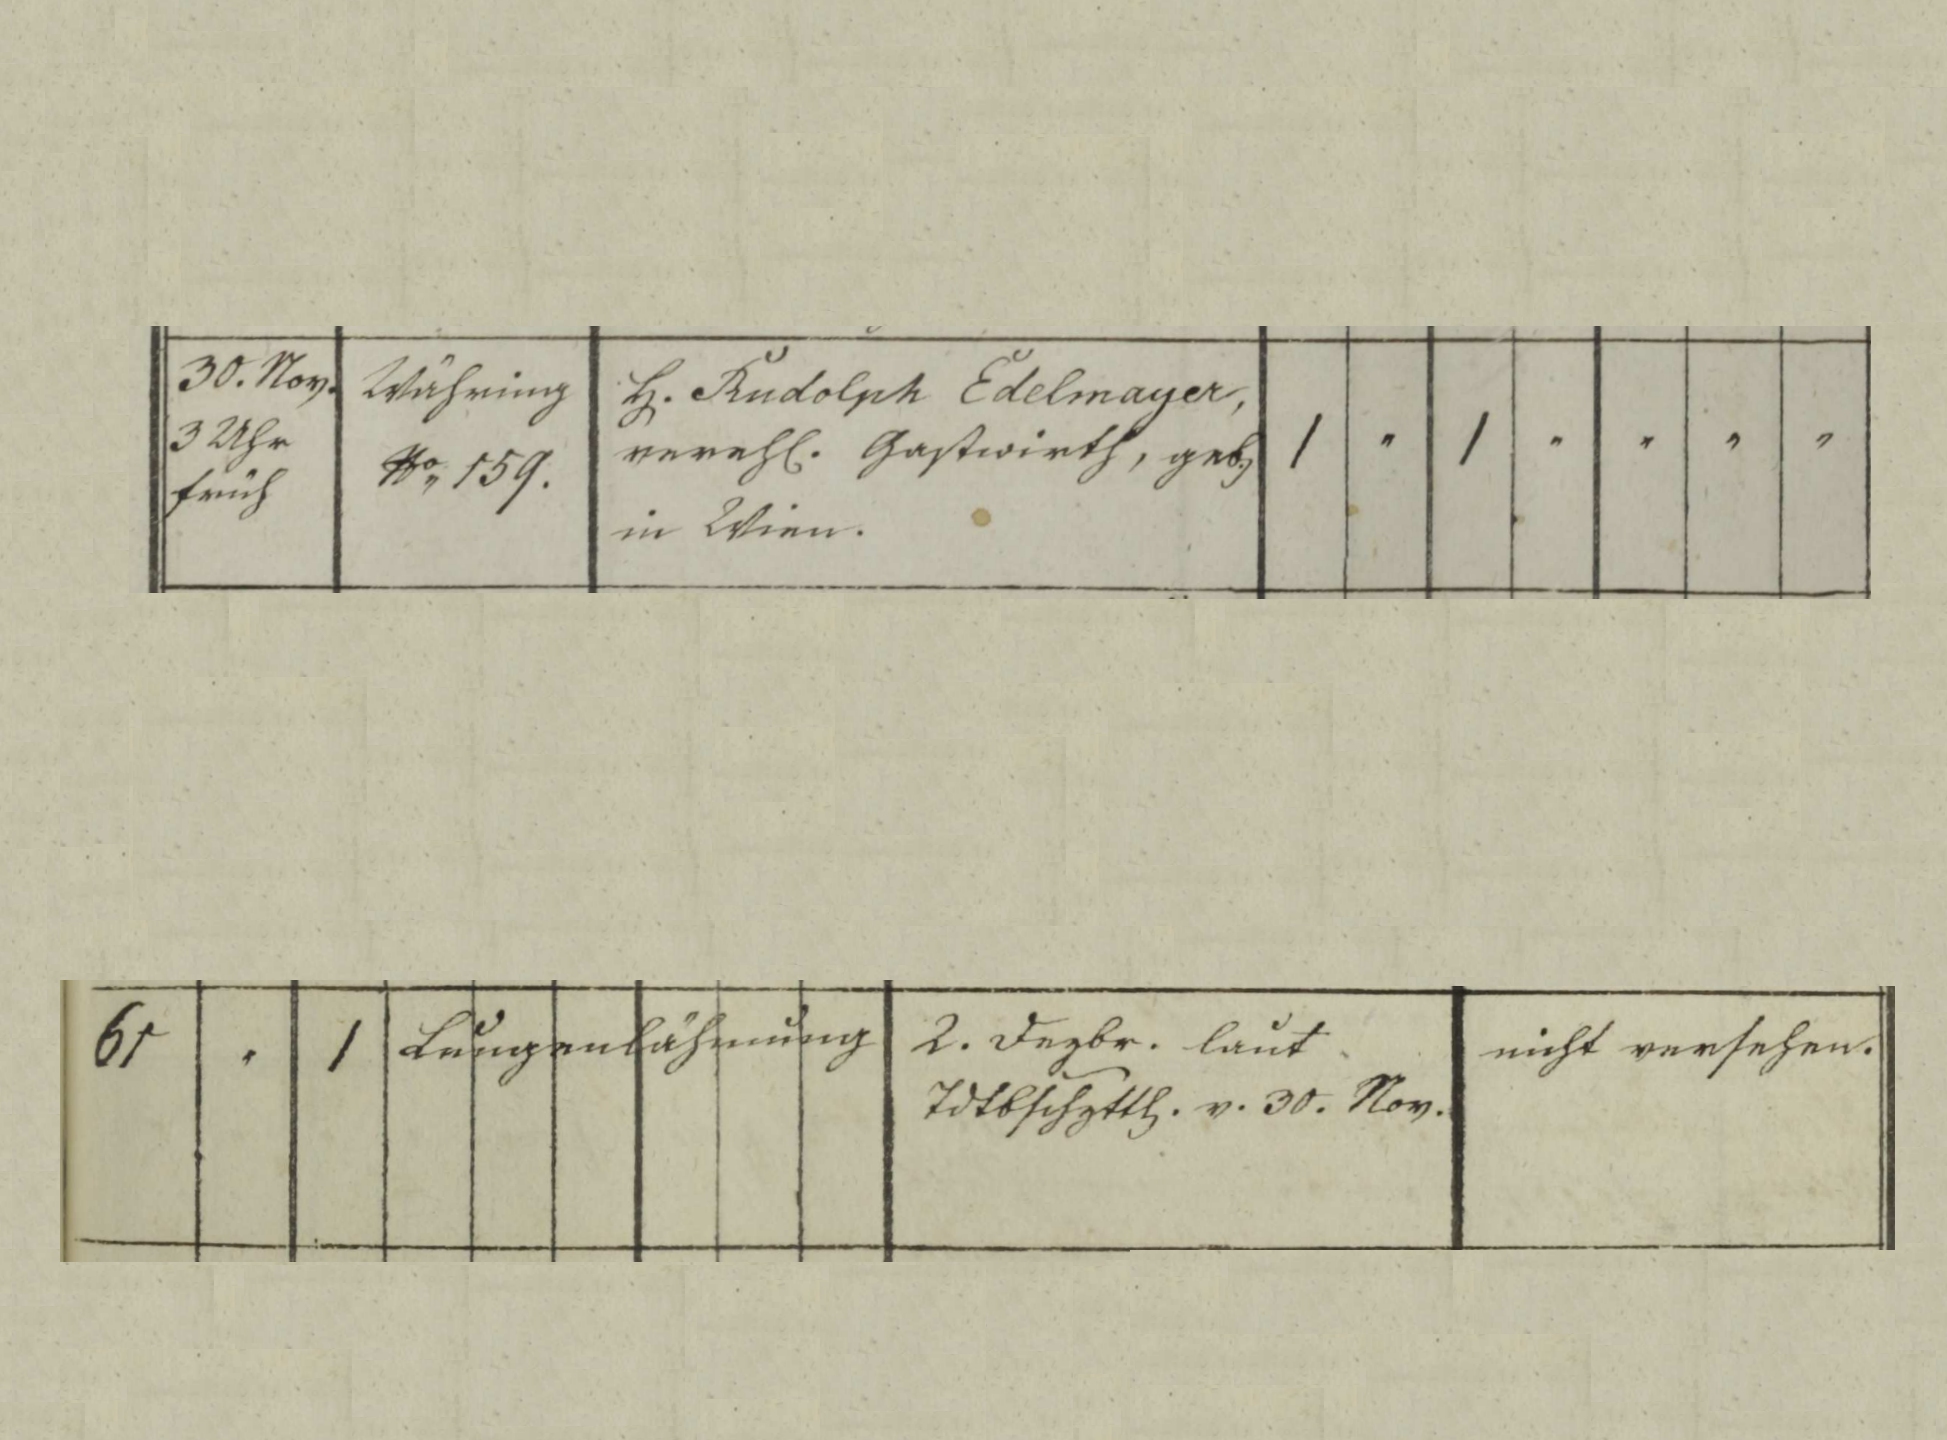 30. Nov.
3 Uhr
früh
Währing
No. 159.
H. Rudolph Edelmayer,
verehl. Gastwirth, geb.
in Wien.
1 " 1 " " " "
61 " 1 Lungenlähmung
2. Dezbr. laut
Tdtbschzttl. v. 30. Nov.
nicht versehen.